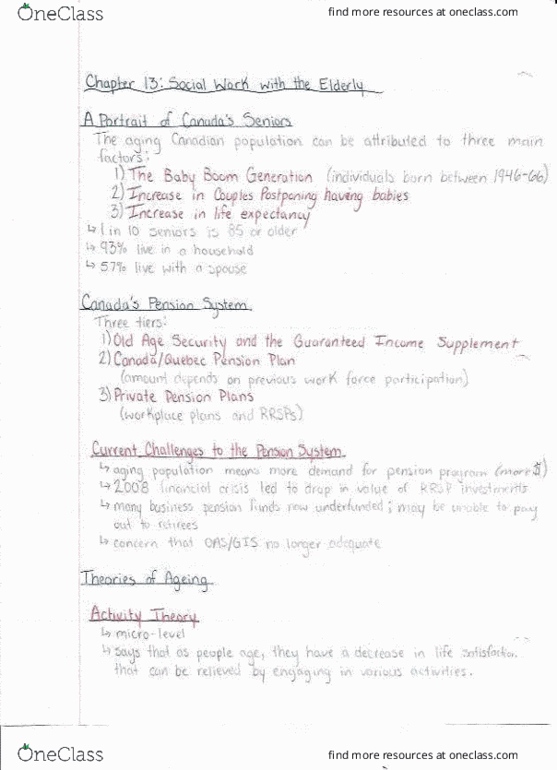 OneClass
find more resources at oneclass.com
Chapter 13: Social Work with the Elderly
A Portrait of Canada's Seniors
The aging Canadian population can be attributed to three main
factors:
1) The Baby Boom Generation (individuals born between 1946-66)
2) Increase in Couples Postponing having babies
3) Increase in life expectancy
↳ 1 in 10 seniors is 85 or older
↳ 93% live in a household
↳ 57% live with a spouse
Canada's Pension System
Three tiers:
1) Old Age Security and the Guaranteed Income Supplement
2) Canada/Quebec Pension Plan
(amount depends on previous work force participation)
3) Private Pension Plans
(workplace plans and RRSPs)
Current Challenges to the Pension System
↳ aging population means more demand for pension program (more $)
↳ 2008 financial crisis led to drop in value of RRSP investments
↳ many business pension funds now underfunded; may be unable to pay
out to retirees
↳ concern that OAS/GIS no longer adequate
Theories of Ageing
Activity Theory
↳ micro-level
↳ says that as people age, they have a decrease in life satisfaction
that can be relieved by engaging in various activities.
OneClass
find more resources at oneclass.com